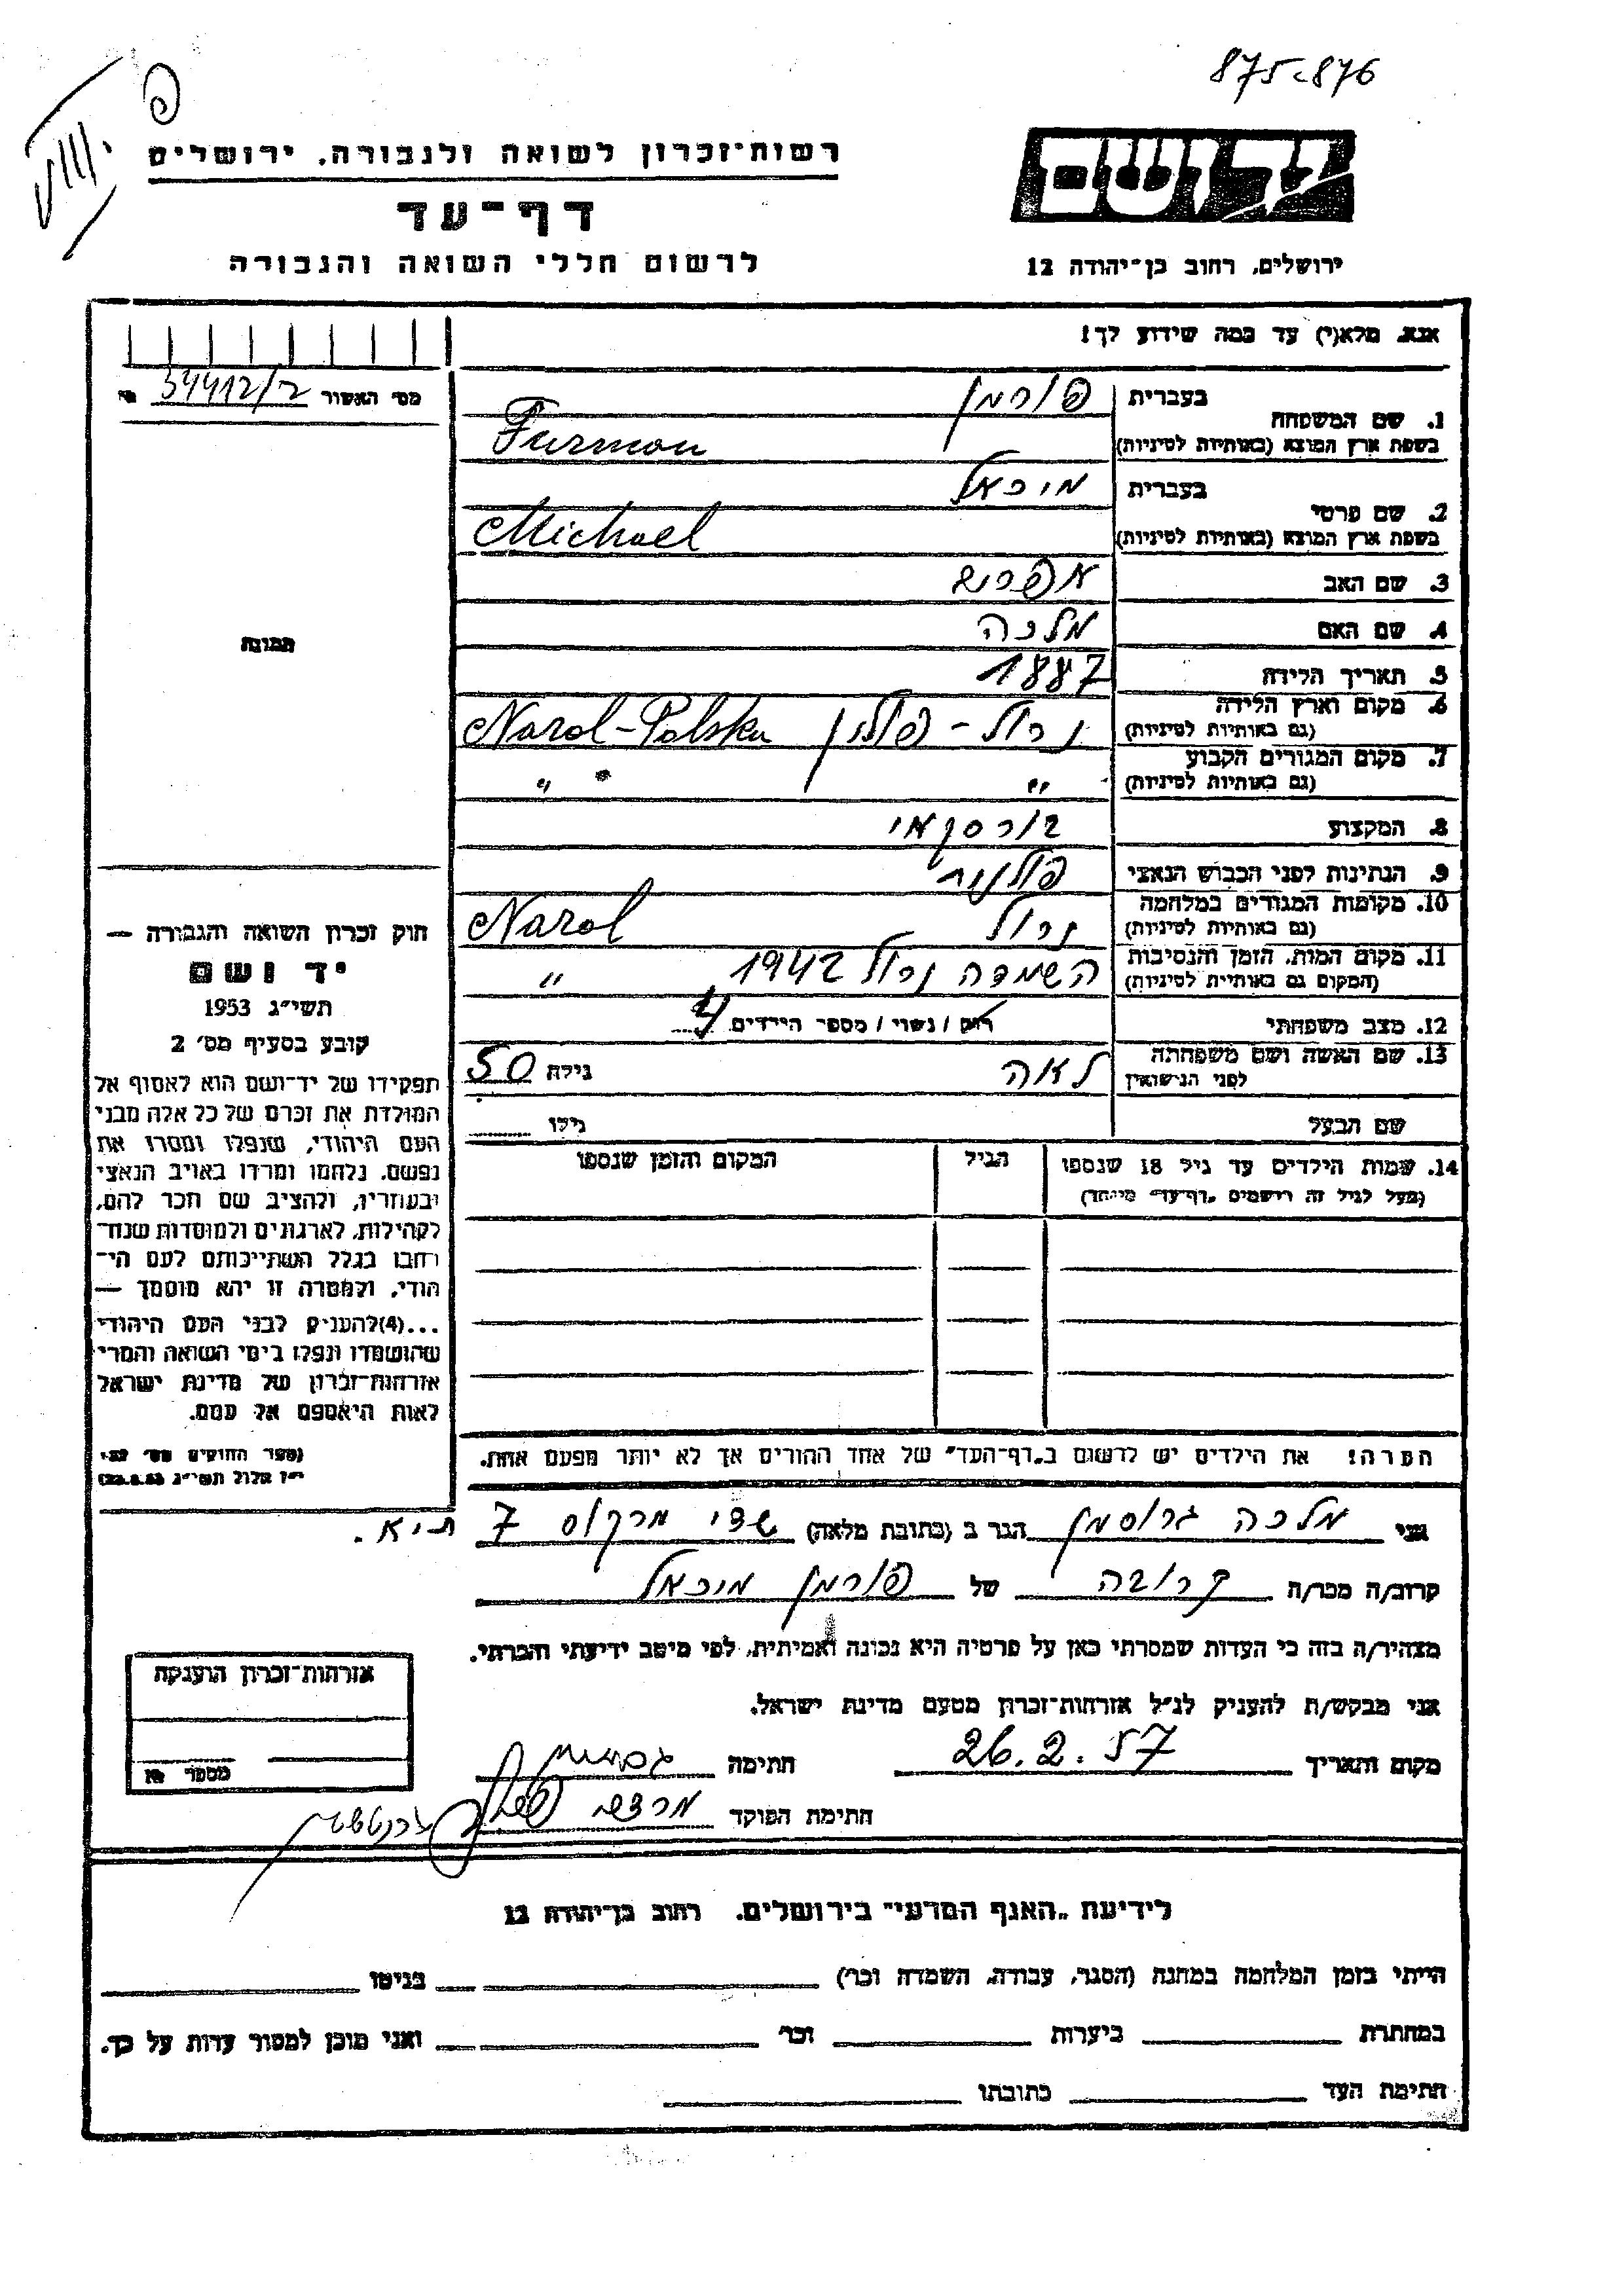 875-876
רשות־זכרון לשואה ולגבורה, ירושלים
דף־עד
לרשום חללי השואה והגבורה
יד ושם
ירושלים, רחוב בן־יהודה 12
אנא, מלא(י) עד כמה שידוע לך!
מס׳ האשור 34412/ר
1. שם המשפחה
בעברית פורמן
בשפת ארץ המוצא (באותיות לטיניות) Furman
2. שם פרטי
בעברית מיכאל
בשפת ארץ המוצא (באותיות לטיניות) Michael
3. שם האב אפרים
4. שם האם מלכה
5. תאריך הלידה 1887
6. מקום וארץ הלידה נרול - פולין Narol-Polska
(גם באותיות לטיניות)
7. מקום המגורים הקבוע " " "
(גם באותיות לטיניות)
8. המקצוע בורסקאי
9. הנתינות לפני הכבוש הנאצי פולנית
10. מקומות המגורים במלחמה נרול Narol
(גם באותיות לטיניות)
11. מקום המות, הזמן והנסיבות השמדה נרול 1942 "
(המקום גם באותיות לטיניות)
12. מצב משפחתי רווק / נשוי / מספר הילדים 4
13. שם האשה ושם משפחתה לאה גילה 50
לפני הנישואין
שם הבעל גילו
14. שמות הילדים עד גיל 18 שנספו הגיל המקום והזמן שנספו
(מעל לגיל זה רושמים „דף־עד״ מיוחד)
הערה! את הילדים יש לרשום ב„דף־העד״ של אחד ההורים אך לא יותר מפעם אחת.
תמונה
חוק זכרון השואה והגבורה —
יד ושם
תשי״ג 1953
קובע בסעיף מס׳ 2
תפקידו של יד־ושם הוא לאסוף אל
המולדת את זכרם של כל אלה מבני
העם היהודי, שנפלו ומסרו את
נפשם, נלחמו ומרדו באויב הנאצי
ובעוזריו, ולהציב שם וזכר להם,
לקהילות, לארגונים ולמוסדות שנח־
רחבו בגלל השתייכותם לעם הי־
הודי, ולמטרה זו יהא מוסמך —
...(4)להעניק לבני העם היהודי
שהושמדו ונפלו בימי השואה והמרי
אזרחות־זכרון של מדינת ישראל
לאות היאספם אל עמם.
(ספר החוקים מס׳ 132,
י״ז אלול תשי״ג 28.8.53)
אני מלכה גרוסמן הגר ב (כתובת מלאה) שדי מרקוס 7 ת״א.
קרוב/ה מכר/ה קרובה של פורמן מיכאל
מצהיר/ה בזה כי העדות שמסרתי כאן על פרטיה היא נכונה ואמיתית, לפי מיטב ידיעתי והכרתי.
אני מבקש/ת להעניק לנ״ל אזרחות־זכרון מטעם מדינת ישראל.
מקום ותאריך 26.2.57 חתימה
חתימת הפוקד
אזרחות־זכרון הוענקה
מספר
לידיעת „האגף המדעי״ בירושלים, רחוב בן־יהודה 12
הייתי בזמן המלחמה במחנה (הסגר, עבודה, השמדה וכר) בגיטו
במחתרת ביערות וכר ואני מוכן למסור עדות על כך.
חתימת העד כתובתו